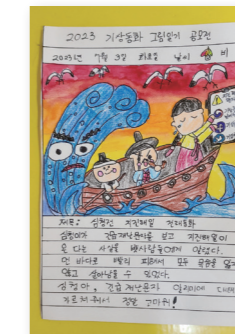 2023 기상동화 그림일기 공모전
2023년 7월 3일 화요일 날씨 비
제목: 심청전 지진해일 전래동화
심청이가 긴급재난문자를 보고 지진해일이
온다는 사실을 뱃사람들에게 알렸다.
먼 바다로 빨리 피해서 모두 목숨을 잃지
않고 살아남을 수 있었다.
심청아, 긴급재난문자 알리미에 대해
가르쳐줘서 정말 고마워!